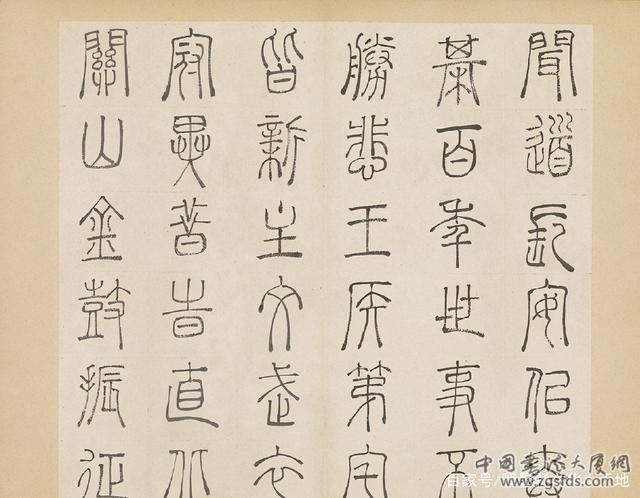 聞道長安佀
棊百年世事不
勝悲王矦第宅
皆新主文武衣
冠異昔旹直北
關山金鼓振征
中國書法大厦網
百家号/
www.zgsfds.com